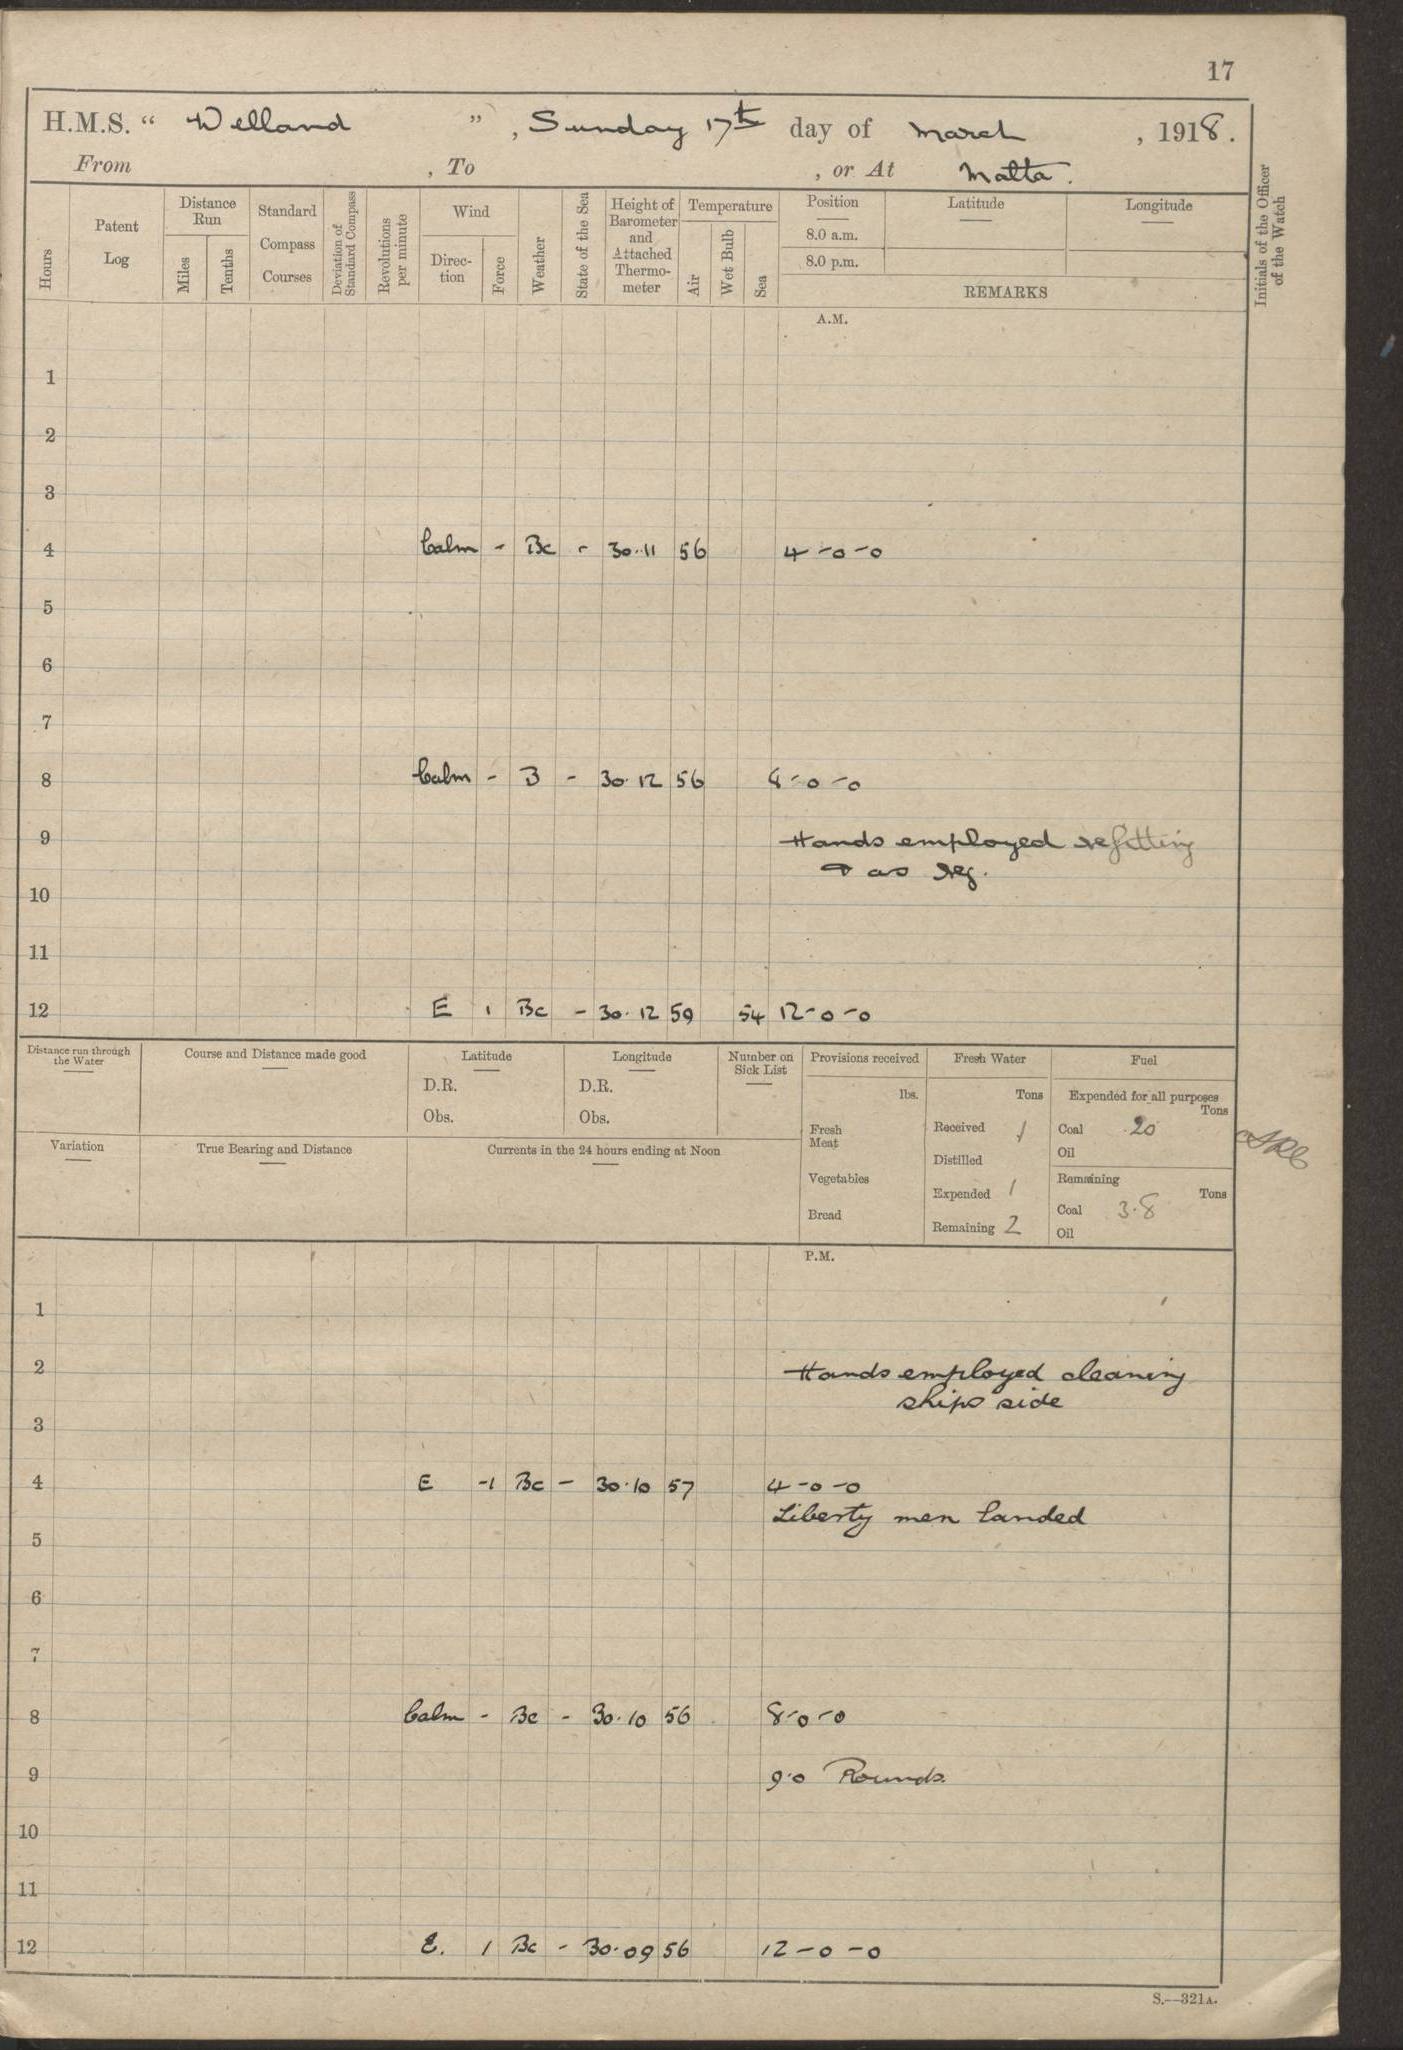 17
H.M.S. “ Welland ” , Sunday 17th day of March , 1918.
From , To , or At Malta.
Hours
Patent Log
Distance Run
Miles
Tenths
Standard Compass Courses
Deviation of Standard Compass
Revolutions per minute
Wind
Direc-tion
Force
Weather
State of the Sea
Height of Barometer and Attached Thermo-meter
Temperature
Air
Wet Bulb
Sea
Position
8.0 a.m.
8.0 p.m.
Latitude
Longitude
REMARKS
Initials of the Officer of the Watch
A.M.
1
2
3
4 Calm - Bc - 30.11 56 4-0-0
5
6
7
8 Calm - B - 30.12 56 8-0-0
9 Hands employed refitting
& as req.
10
11
12 E 1 Bc - 30.12 59 54 12-0-0
Distance run through the Water
Course and Distance made good
Latitude
D.R.
Obs.
Longitude
D.R.
Obs.
Number on Sick List
Variation
True Bearing and Distance
Currents in the 24 hours ending at Noon
Provisions received
lbs.
Fresh Meat
Vegetables
Bread
Fresh Water
Tons
Received 1
Distilled
Expended 1
Remaining 2
Fuel
Expended for all purposes
Tons
Coal .20
Oil
Remaining
Tons
Coal 3.8
Oil
P.M.
1
2 Hands employed cleaning
ships side
3
4 E -1 Bc - 30.10 57 4-0-0
Liberty men landed
5
6
7
8 Calm - Bc - 30.10 56 8-0-0
9 9.0 Rounds.
10
11
12 E. 1 Bc - 30.09 56 12-0-0
S.—321A.